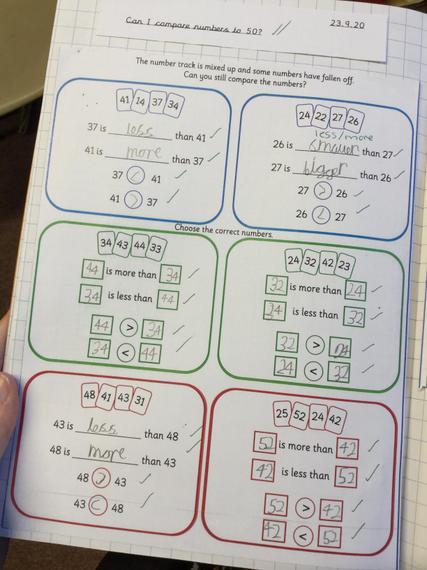 Can I compare numbers to 50?
23.9.20
The number track is mixed up and some numbers have fallen off.
Can you still compare the numbers?
41 14 37 34
37 is less than 41
41 is more than 37
37 < 41
41 > 37
24 22 27 26
less/more
26 is smauur than 27
27 is bigger than 26
27 > 26
26 < 27
Choose the correct numbers.
34 43 44 33
44 is more than 34
34 is less than 44
44 > 34
34 < 44
24 32 42 23
32 is more than 24
24 is less than 32
32 > 24
24 < 32
48 41 43 31
43 is less than 48
48 is more than 43
48 > 43
43 < 48
25 52 24 42
52 is more than 42
42 is less than 52
52 > 42
42 < 52